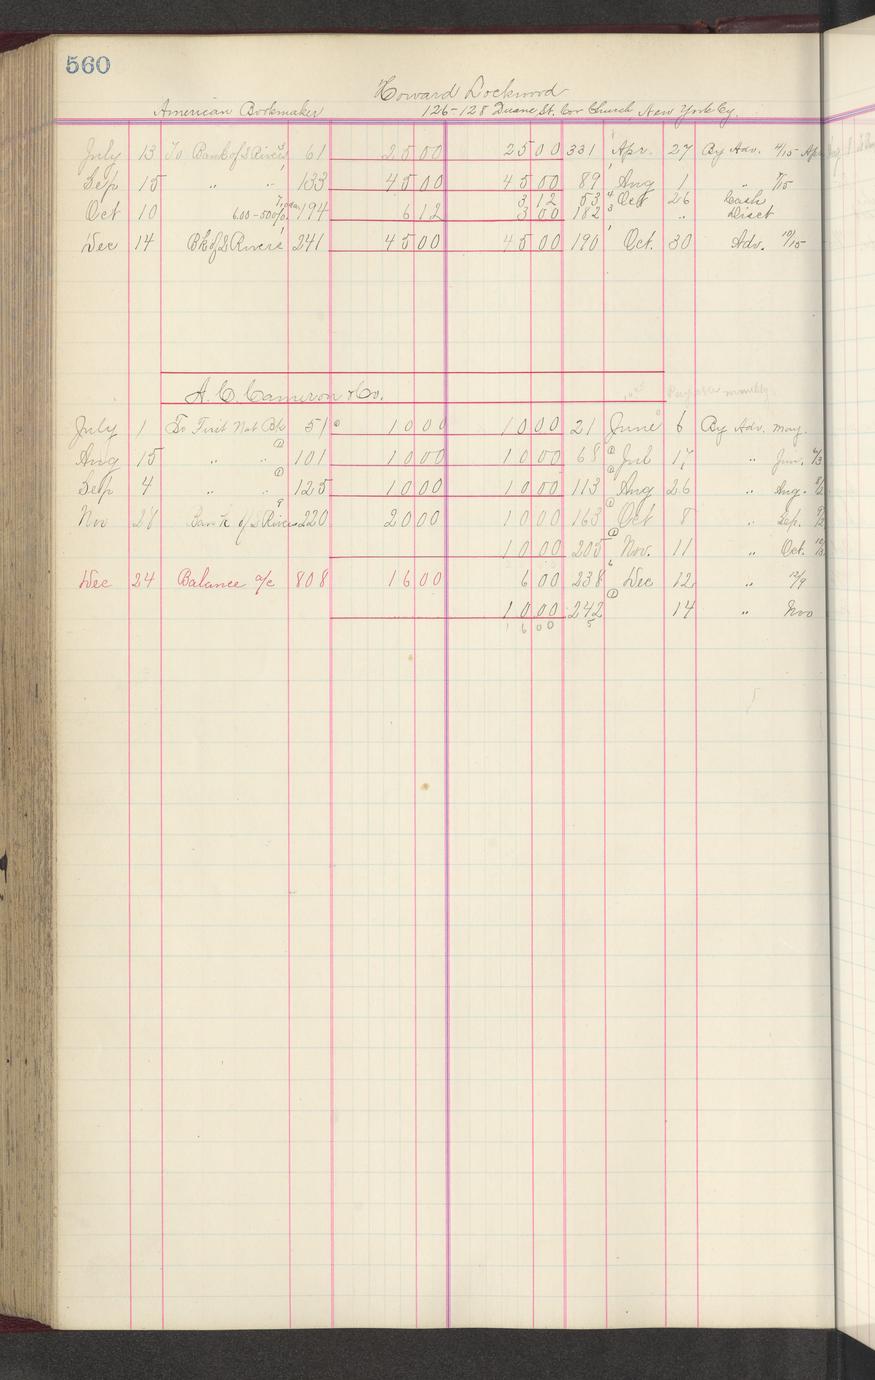 560
Howard Lockwood
American Bookmaker 126-128 Duane St. Cor Church New York Cy.
July 13 To Bank of 3 Rivers 61 25 00 25 00 331 Apr. 27 By Adv. 4/15
Sep 15 " " 133 45 00 45 00 89 Aug 1 " 7/15
3 12 53 Oct 26 Cash
Oct 10 6.00-50% 194 6 12 3 00 182 " Disct
Dec 14 Bk of 3 Rivers 241 45 00 45 00 190 Oct. 30 Adv. 10/15
A. C. Cameron & Co. Payable monthly
July 1 To First Nat Bk 51 10 00 10 00 21 June 6 By Adv. May.
Aug 15 " " 101 10 00 10 00 68 Jul 17 " Jun.
Sep 4 " " 125 10 00 10 00 113 Aug 26 " Aug.
Nov 28 Bank of 3 Rivers 220 20 00 10 00 163 Oct 8 " Sep.
10 00 205 Nov. 11 " Oct.
Dec 24 Balance a/c 808 16 00 6 00 238 Dec 12 " 12/9
10 00 242 14 " Nov
16 00